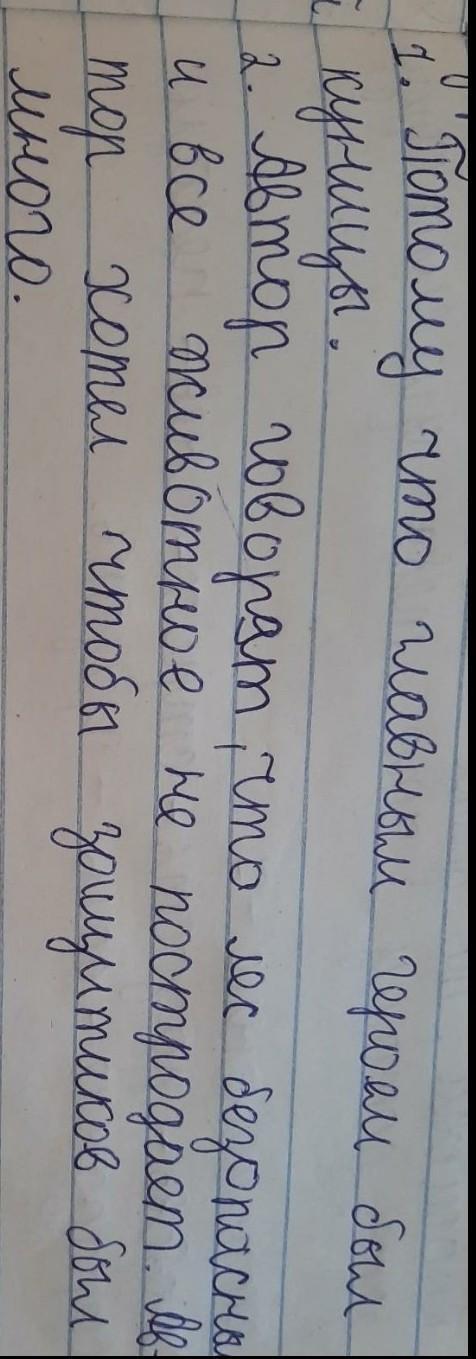 1. Потому что главным героем был
куницы.
2. Автор говорят, что лес безопасны
и все животное не постродает. Ав-
тор хотел чтобы защитиков был
много.